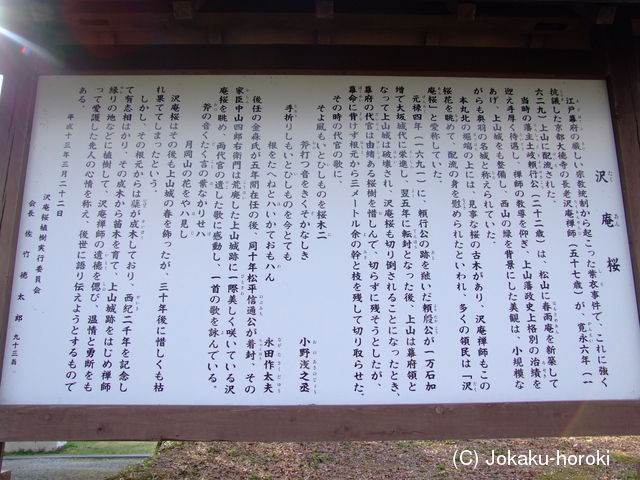 沢庵桜
たくあん
江戸幕府の厳しい宗教統制から起こった紫衣事件で、これに強く
抗議した京都大徳寺の長老沢庵禅師(五十七歳)が、寛永六年(一
六二九)上山に配流された。
当時の藩主土岐頼行公(二十二歳)は、松山に春雨庵を新築して
迎え手厚く待遇し、禅師の教導を仰ぎ、上山藩政史上格別の治績を
あげ、上山城をも整備し、西山の緑を背景にした美観は、小規模な
がらも奥羽の名城と称えられていた。
本丸北の堀端の土手には、見事な桜の古木があり、沢庵禅師もこの
桜花を眺めて、配流の身を慰められたといわれ、多くの領民は「沢
庵桜」と愛称していた。
元禄四年(一六九一)に、頼行公の跡を継いだ頼殷公が一万石加
増で大坂城代に栄進し、翌五年に転封となった後、上山は幕府領と
なって上山城は破壊され、沢庵桜も切り倒されることになったとき、
幕府の代官は由緒ある桜樹を惜しんで、切らずに残そうとしたが、
幕命に背けず根元から三メートル余の幹と枝を残して切り取らせた。
その時の代官の歌に、
そよ風もいとひしものを桜木に
斧打つ音をきくぞかなしき
小野浅之丞
手折りしもいとひしものを今とても
根をたへねといいかておもハん
永田作太夫
後任の金森氏が五年間在任の後、同十年松平信通公が着封、その
家臣中山四郎右衛門は荒廃した上山城跡に一際美しく咲いている沢
庵桜を眺め、両代官の遺した歌に感動し、一首の歌を詠んでいる。
斧の音くたく言の葉なかりせハ
月岡山の花をやハ見し
沢庵桜はその後も上山城の春を飾ったが、三十年後に惜しくも枯
れ果ててしまったという。
しかし、その根元からは蘖が成木しており、西紀二千年を記念し
て有志相はかり、その成木から苗木を育て、上山城跡をはじめ禅師
縁りの地などに植樹して、沢庵禅師の遺徳を偲び、温情と勇断をも
って愛護した先人の心情を称え、後世に語り伝えようとするもので
ある。
平成十三年三月二十二日
沢庵桜植樹実行委員会
会長 佐竹徳太郎 九十三翁
(C) Jokaku-horoki